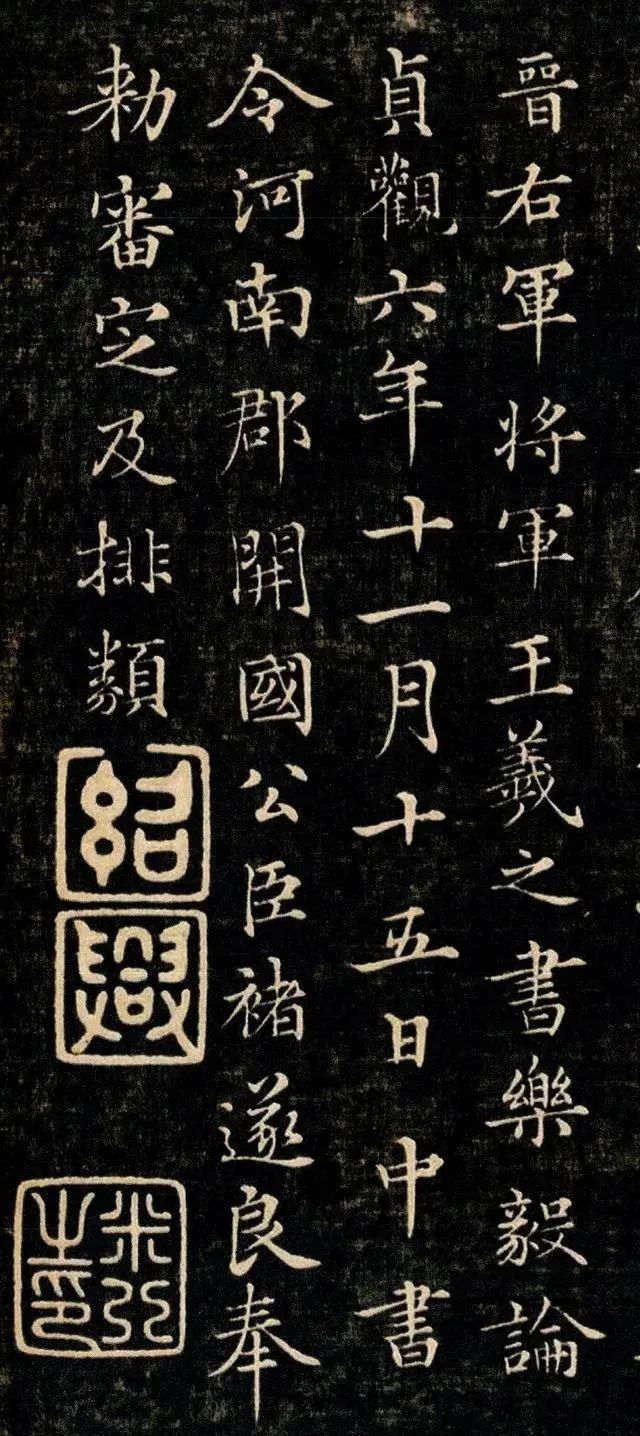 晉右軍將軍王羲之書樂毅論
貞觀六年十一月十五日 中書
令河南郡開國公臣褚遂良奉
勑審定及排類
紹
興
米芾之印